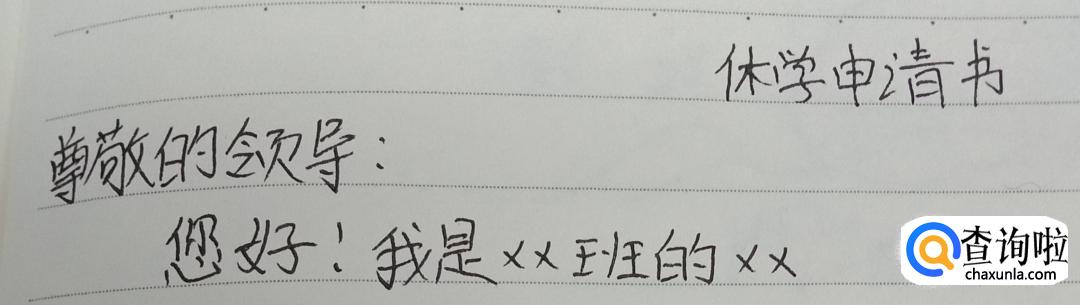 休学申请书
尊敬的领导：
您好！我是××班的××
查询啦
chaxunla.com